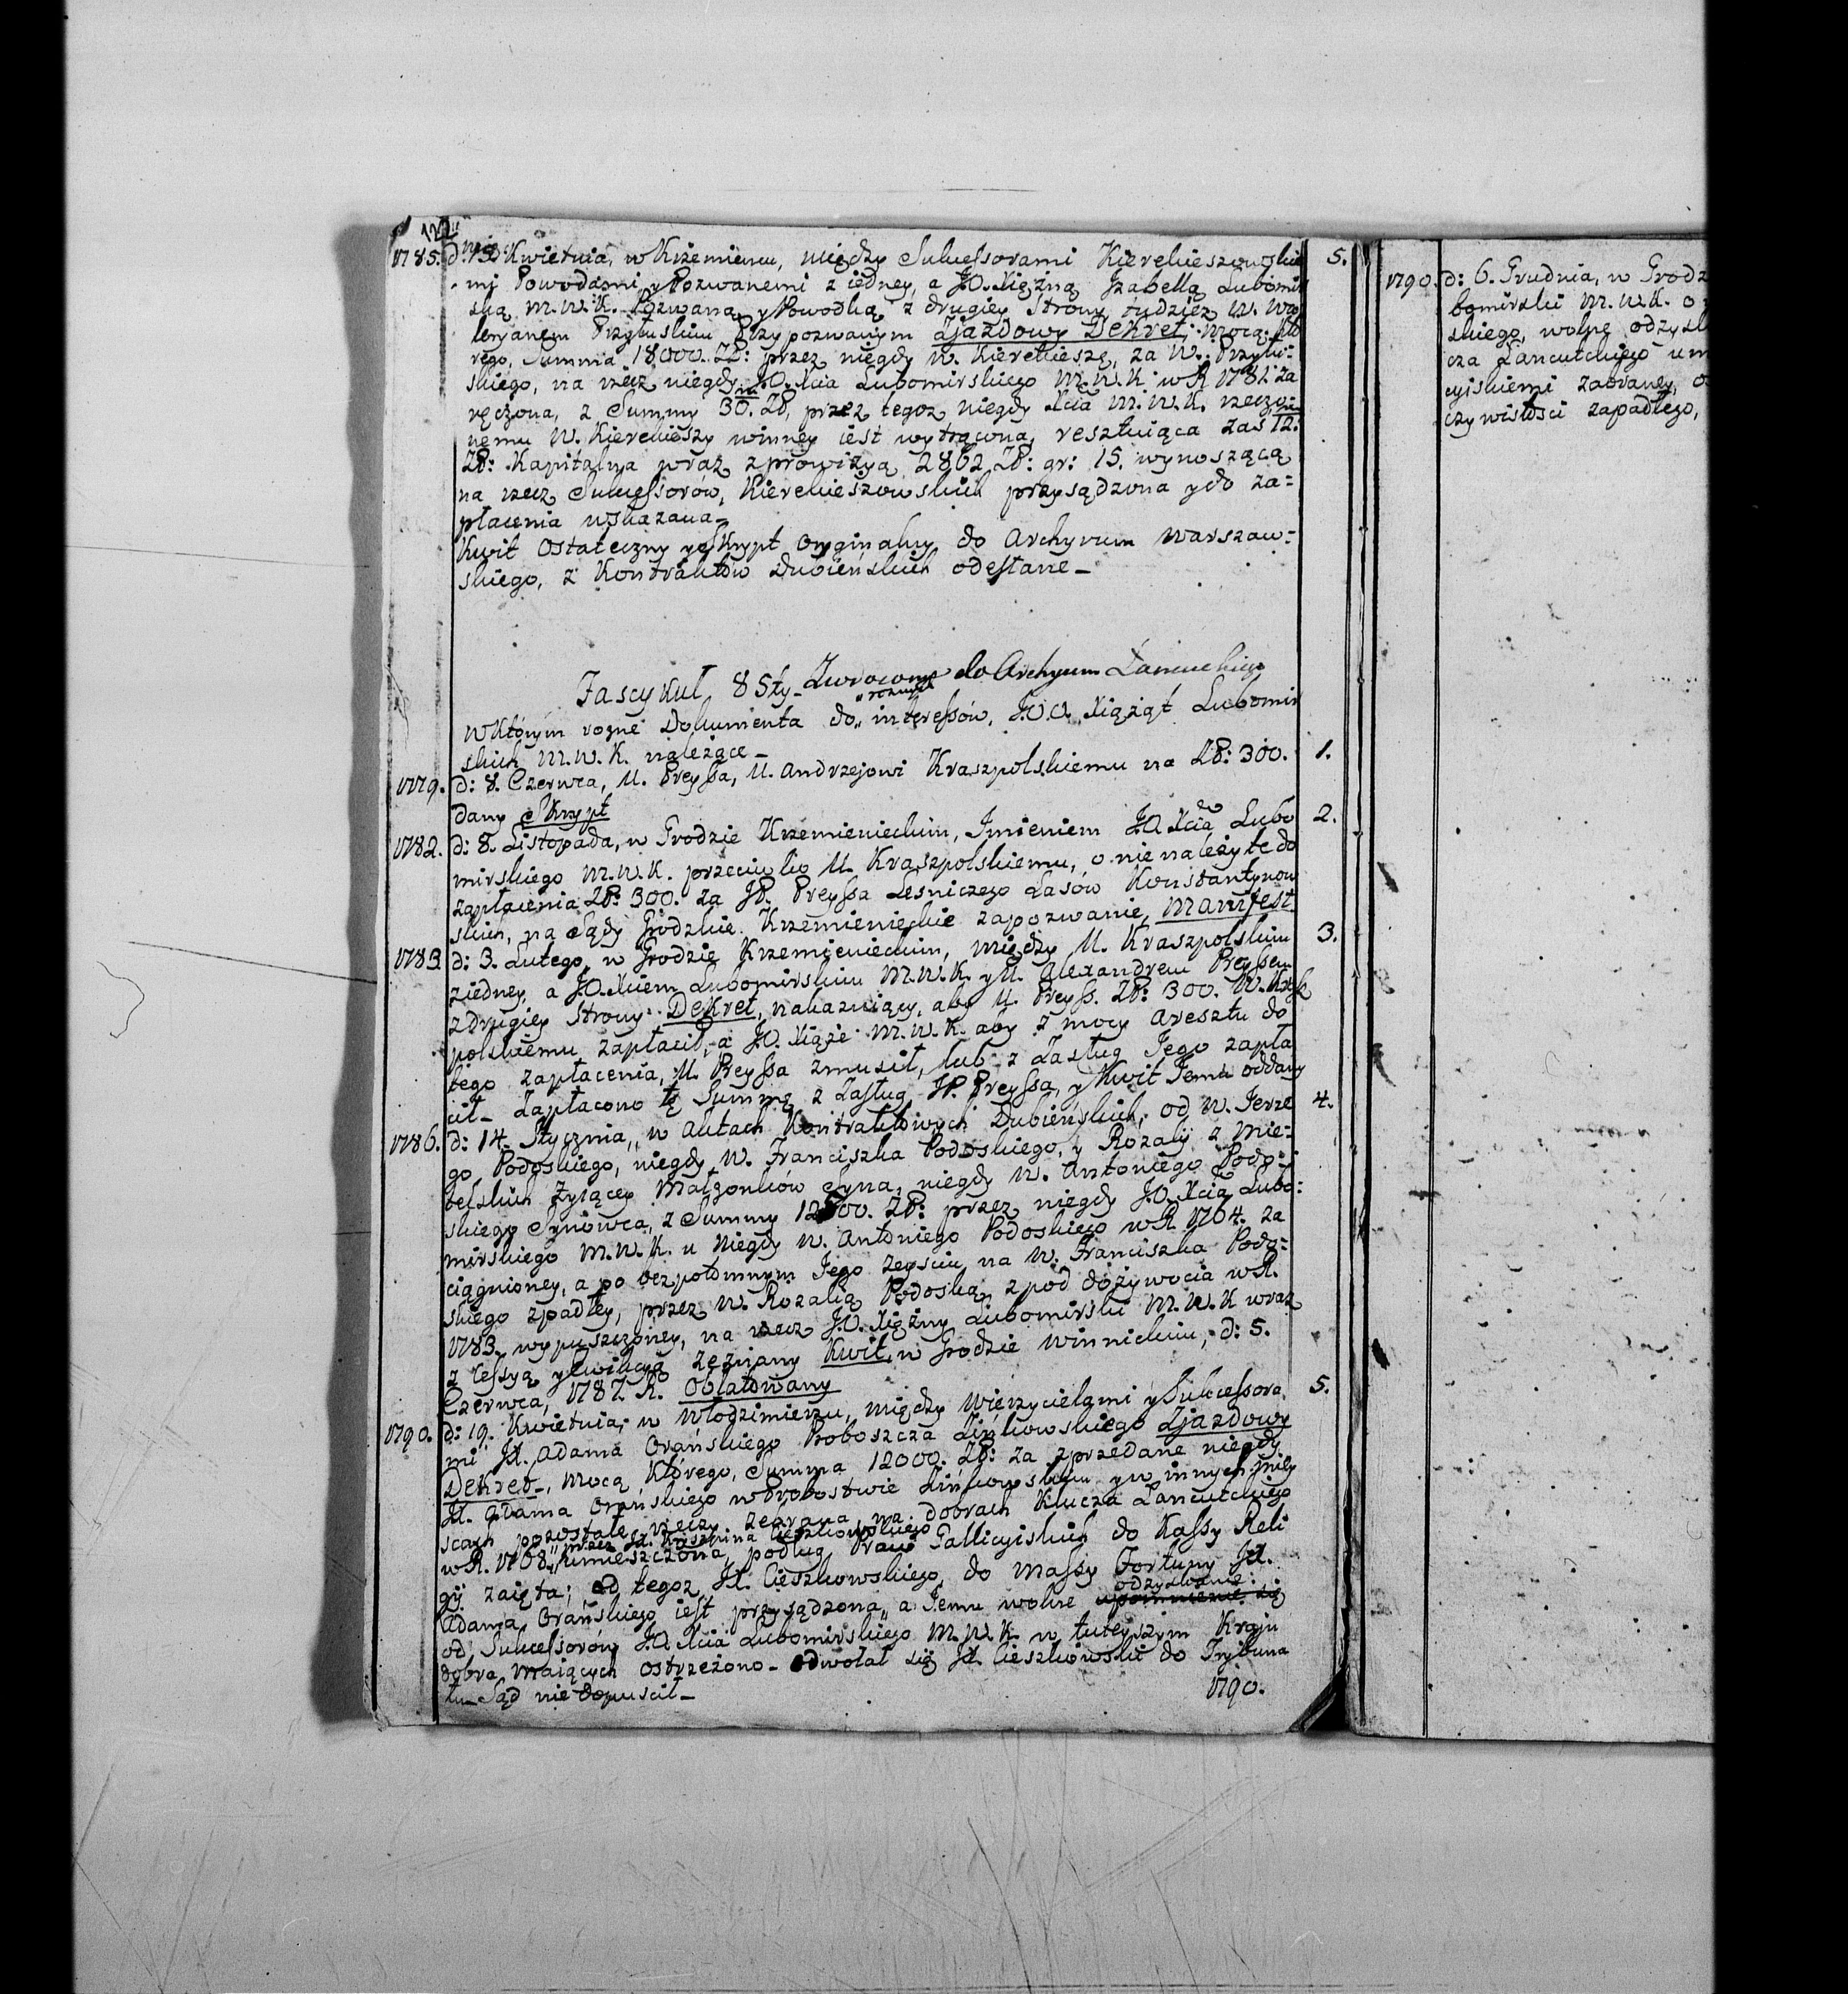 122
1785. d: 13 Kwietnia, w Krzemieńcu, między Sukcessorami Kierekieszowskie 5.
mi Powodami y Pozwanemi z iedney, a J.O. Xiężną Izabellą Lubomir
ską M.W.K. Pozwaną y Powodką z drugiey Strony tudziez W. Wa
leryanem Przyłuskim Przypozwanym Zjazdowy Dekret, mocą któ
rego, Summa 18000. ZP: przez niegdy W. Kierekieszę, za W. Przyłu:
skiego, na rzecz niegdy J.O. Xcia Lubomirskiego M.W.K. w R. 1782 za
ręczona, z Summy 30. ZP, przez tegoz niegdy Xcia M.W.K. rzeczo
nemu W. Kierekieszy winney iest wytrącona, resztuiąca zaś 12.
ZP: Kapitalna wraz z prowizyą 2862 ZP: gr: 15. wynoszącą
na rzecz Sukcessorów, Kierekieszowskich przysądzona y do za=
płacenia wskazana_
Kwit Ostateczny y Skrypt Oryginalny do Archyvum Warszaw=
skiego, z Kontraktów Dubieńskich odesłane_
Fascykuł 8 Sty_ Zwrocony do Archyum Łancuckiego
w którym rozne Dokumenta do „roznych interessów, J.O.O. Xiążąt Lubomir
skich M.W.K. należące_
1779. d: 8. Czerwca, U. Preyssa, U. Andrzejowi Kraszpolskiemu na ZP: 300. 1.
dany Skrypt
1782. d: 8. Listopada, w Grodzie Krzemienieckim, Imieniem J.O. Xcia Lubo 2.
mirskiego M.W.K. przeciwko U. Kraszpolskiemu, o nie należyte do
zapłacenia ZP: 300. za JP. Preyssa Leśniczego Lasów Konstantynow
skich, na Sądy Grodzkie Krzemienieckie zapozwanie, Manifest
1783 d: 3. Lutego, w Grodzie Krzemienieckim, między U. Kraszpolskim 3.
z iedney, a J.O. Xciem Lubomirskim M.W.K. y U. Alexandrem Preyssem
z drugiey Strony Dekret, nakazuiący, aby U. Preyss. ZP: 300. W. Krasz
polskiemu zapłacił, a J.O. Xiąże M.W.K. aby z mocy Aresztu do
tego zapłacenia, U. Preyssa zmusił, lub z Zasług Jego zapła
cił_ Zapłacono tę Summę z Zasług JP. Preyssa, y Kwit Jemu oddany
1786. d: 14. Stycznia, w Aktach Kontraktowych Dubieńskich, od W. Jerze 4.
go Podoskiego, niegdy W. Franciszka Podoskiego, y Rozalij z Mie=
telskich Zyiącey Małzonków Syna, niegdy W. Antoniego Podo=
skiego Synowca, z Summy 12000. ZP: przez niegdy J.O. Xcia Lubo:
mirskiego M.W.K. u Niegdy W. Antoniego Podoskiego w R. 1764. za
ciągnioney, a po bezpotomnym Jego zeyściu na W. Franciszka Podo=
skiego spadłey, przez W. Rozalią Podoską, z pod dożywocia w R.
1783. wypuszczoney, na rzecz J.O. Xiężny Lubomirski M.W.K wraz
z Cessyą y Ewikcyą zeznany Kwit, w Grodzie Winnickim, d: 5.
Czerwca, 1787. R. Oblatowany
1790. d: 19. Kwietnia, w Włodzimierzu, między Wierzycielami y Sukcessora 5.
mi JX. Adama Orańskiego Proboszcza Zińkowskiego Zjazdowy
Dekret_, mocą którego, Summa 12000. ZP: za zprzedane niegdy
JX. Adama Orańskiego w Probostwie Zińkowskim y w innych miey
scach pozostałe rzeczy zebrana, na dobrach Klucza Łancutckiego
w R. 1768. „przez JX. Cieszkowskiego umieszczona, podług Praw Gallicyiskich do Kassy Reli
gij zaięta; od tegoz JX. Cieszkowskiego, do Massy Fortuny JX.
Adama Orańskiego iest przysądzona, a Jemu wolne odzyskanie
od Sukcessorów J.O. Xcia Lubomirskiego M.W.K. w tuteyszym Kraju
dobra maiących ostrzeżono_ odwołał się JX. Cieszkowski do Trybuna
łu_ Sąd nie dopuścił_
1790.
1790. d: 6. Grudnia, w Grodz
bomirski M.W.K. o
skiego, wolne odzysk
cza Łancutckiego um
cyiskiemi zabraney,
czywistości zapadłego,